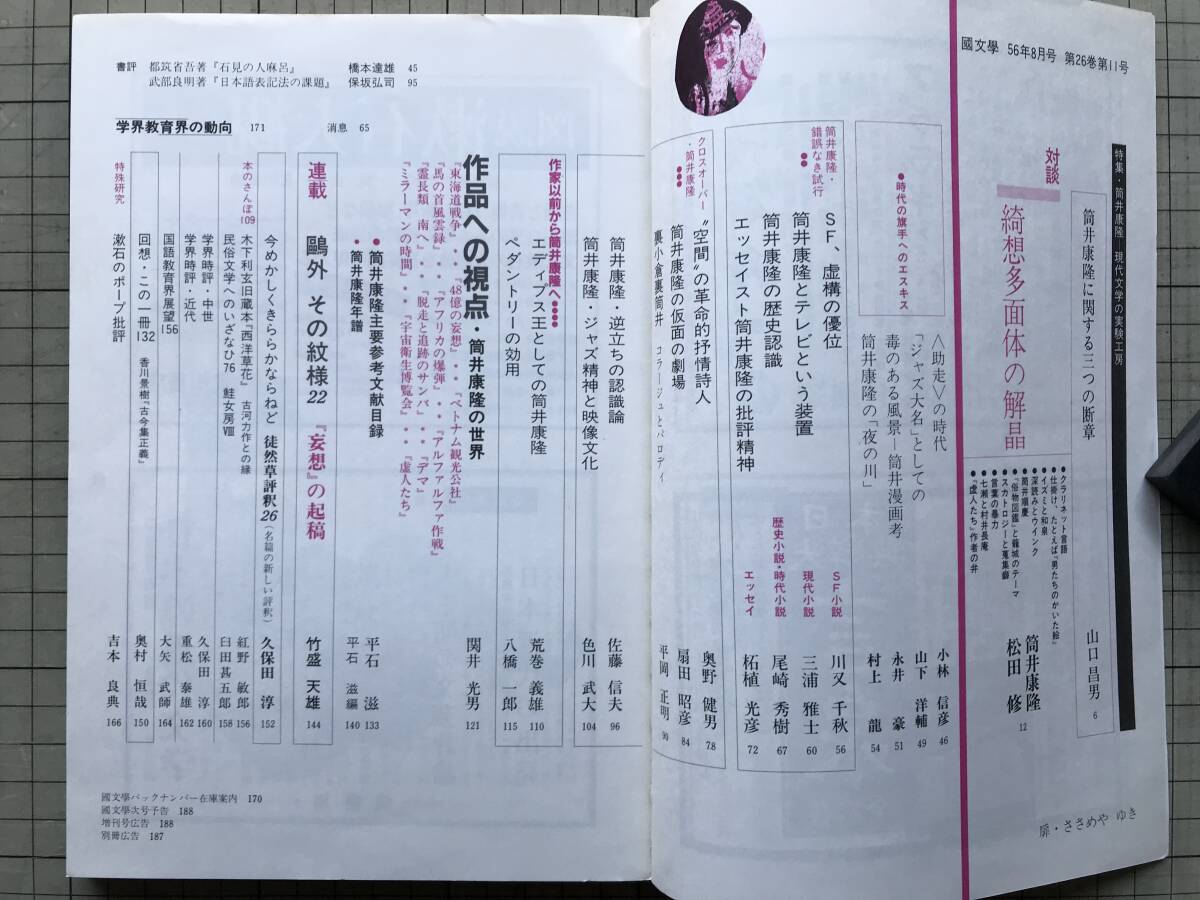 國文學 56年8月号 第26巻第11号
特集・筒井康隆―現代文学の実験工房
筒井康隆に関する三つの断章 山口昌男 6
対談
綺想多面体の解晶 筒井康隆 松田 修 12
●クラリネット言語
●仕掛け、たとえば『男たちのかいた絵』
●イズミと和泉
●深読みとウインク
●筒井順慶
●『俗物図鑑』と籠城のテーマ
●スカトロジーと蒐集癖
●言葉の暴力
●七瀬と村井長庵
●『虚人たち』作者の弁
●時代の旗手へのエスキス
〈助走〉の時代 小林 信彦 46
「ジャズ大名」としての 山下 洋輔 49
毒のある風景―筒井漫画考 永井 豪 51
筒井康隆の「夜の川」 村上 龍 54
筒井康隆・錯誤なき試行●●
SF、虚構の優位 SF小説 川又 千秋 56
筒井康隆とテレビという装置 現代小説 三浦 雅士 60
筒井康隆の歴史認識 歴史小説・時代小説 尾崎 秀樹 67
エッセイスト筒井康隆の批評精神 エッセイ 柘植 光彦 72
クロスオーバー・筒井康隆●●●
“空間”の革命的抒情詩人 奥野 健男 78
筒井康隆の仮面の劇場 扇田 昭彦 84
裏小倉裏筒井 コラージュとパロディ 平岡 正明 90
筒井康隆・逆立ちの認識論 佐藤 信夫 96
筒井康隆・ジャズ精神と映像文化 色川 武大 104
作家以前から筒井康隆へ●●●●
エディプス王としての筒井康隆 荒巻 義雄 110
ペダントリーの効用 八橋 一郎 115
作品への視点・筒井康隆の世界 関井 光男 121
『東海道戦争』・・『48億の妄想』・・『ベトナム観光公社』
『馬の首風雲録』・・『アフリカの爆弾』・・『アルファルファ作戦』
『霊長類 南へ』・・『脱走と追跡のサンバ』・・『デマ』
『ミラーマンの時間』・・『宇宙衛生博覧会』・・『虚人たち』
●筒井康隆主要参考文献目録 平石 滋 133
・筒井康隆年譜 平石 滋編 140
連載 鷗外 その紋様 22 『妄想』の起稿 竹盛 天雄 144
今めかしくきららかならねど 徒然草評釈 26（名篇の新しい評釈） 久保田 淳 152
本のさんぽ109 木下利玄旧蔵本『西洋草花』 古河力作との縁 紅野 敏郎 156
民俗文学へのいざなひ76 鮭女房Ⅷ 臼田甚五郎 158
学界時評・中世 久保田 淳 160
学界時評・近代 重松 泰雄 162
国語教育界展望156 大矢 武師 164
回想・この一冊132 香川景樹『古今集正義』 奥村 恒哉 150
特殊研究 漱石のポープ批評 吉本 良典 166
書評 都筑省吾著『石見の人麻呂』 橋本達雄 45
武部良明著『日本語表記法の課題』 保坂弘司 95
学界教育界の動向 171 消息 65
國文學バックナンバー在庫案内 170
國文學次号予告 188
増刊号広告 188
別冊広告 187
扉・ささめや ゆき